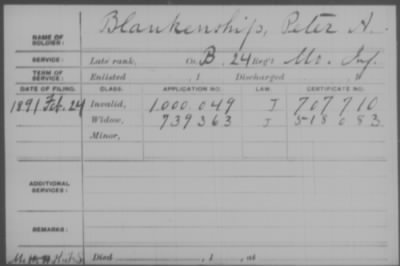 NAME OF SOLDIER: Blankenship, Peter A.
SERVICE: Late rank, Co. B, 24 Reg't Mo. Inf.
TERM OF SERVICE: Enlisted , 1 Discharged , 1
DATE OF FILING. CLASS. APPLICATION NO. LAW. CERTIFICATE NO.
1891 Feb. 24 Invalid, 1.000.049 J 707710
Widow, 739363 J 518083
Minor,
ADDITIONAL SERVICES:
REMARKS:
Died , 1 , at